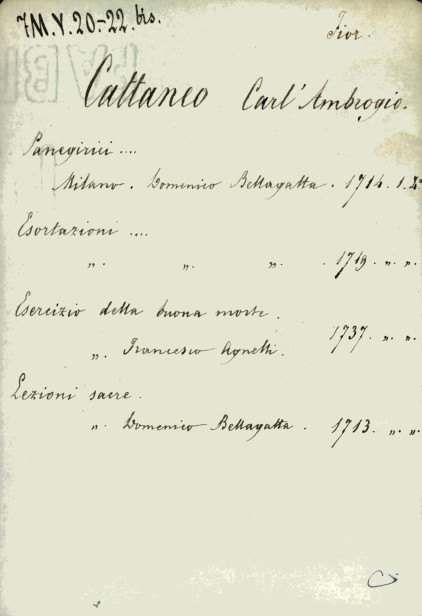 7M.Y.20-22. bis.
Fior.
Cattaneo Carl'Ambrogio.
Panegirici ....
Milano. Domenico Bellagatta. 1714. 1. 4°
Esortazioni ....
„. „. „. 1719. „. „.
Esercizio della buona morte.
„. Francesco Agnelli. 1737. „. „.
Lezioni sacre.
„. Domenico Bellagatta. 1713. „. „.